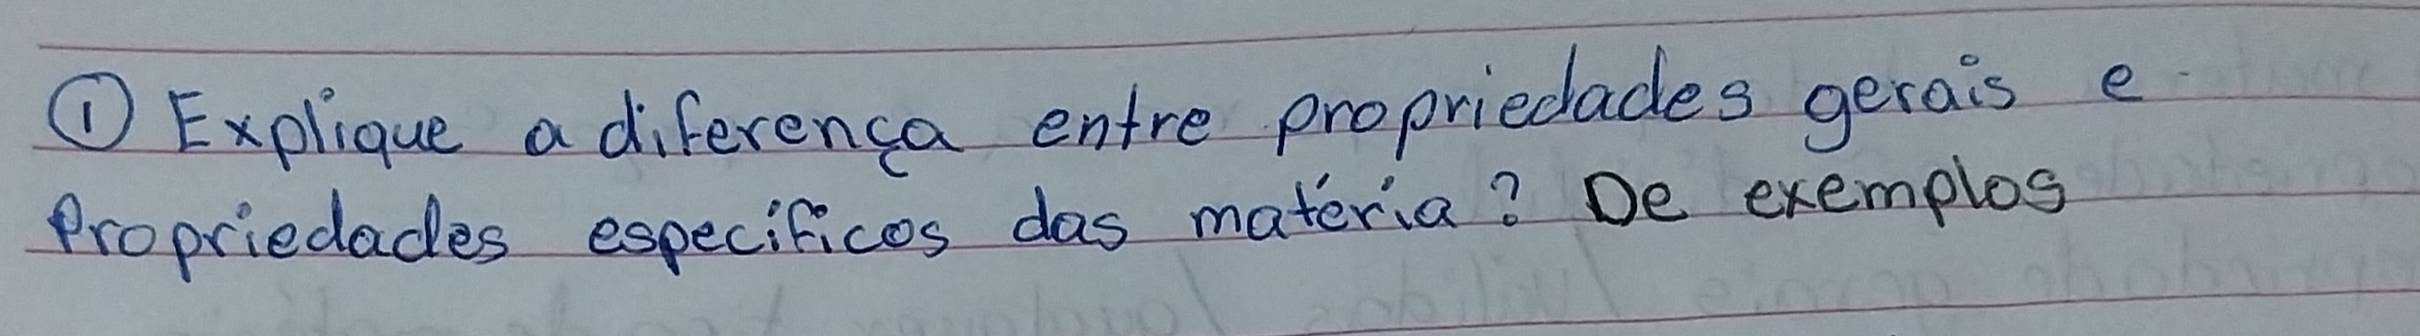 ① Explique a diferença entre propriedades gerais e
Propriedades específicos das matéria? De exemplos